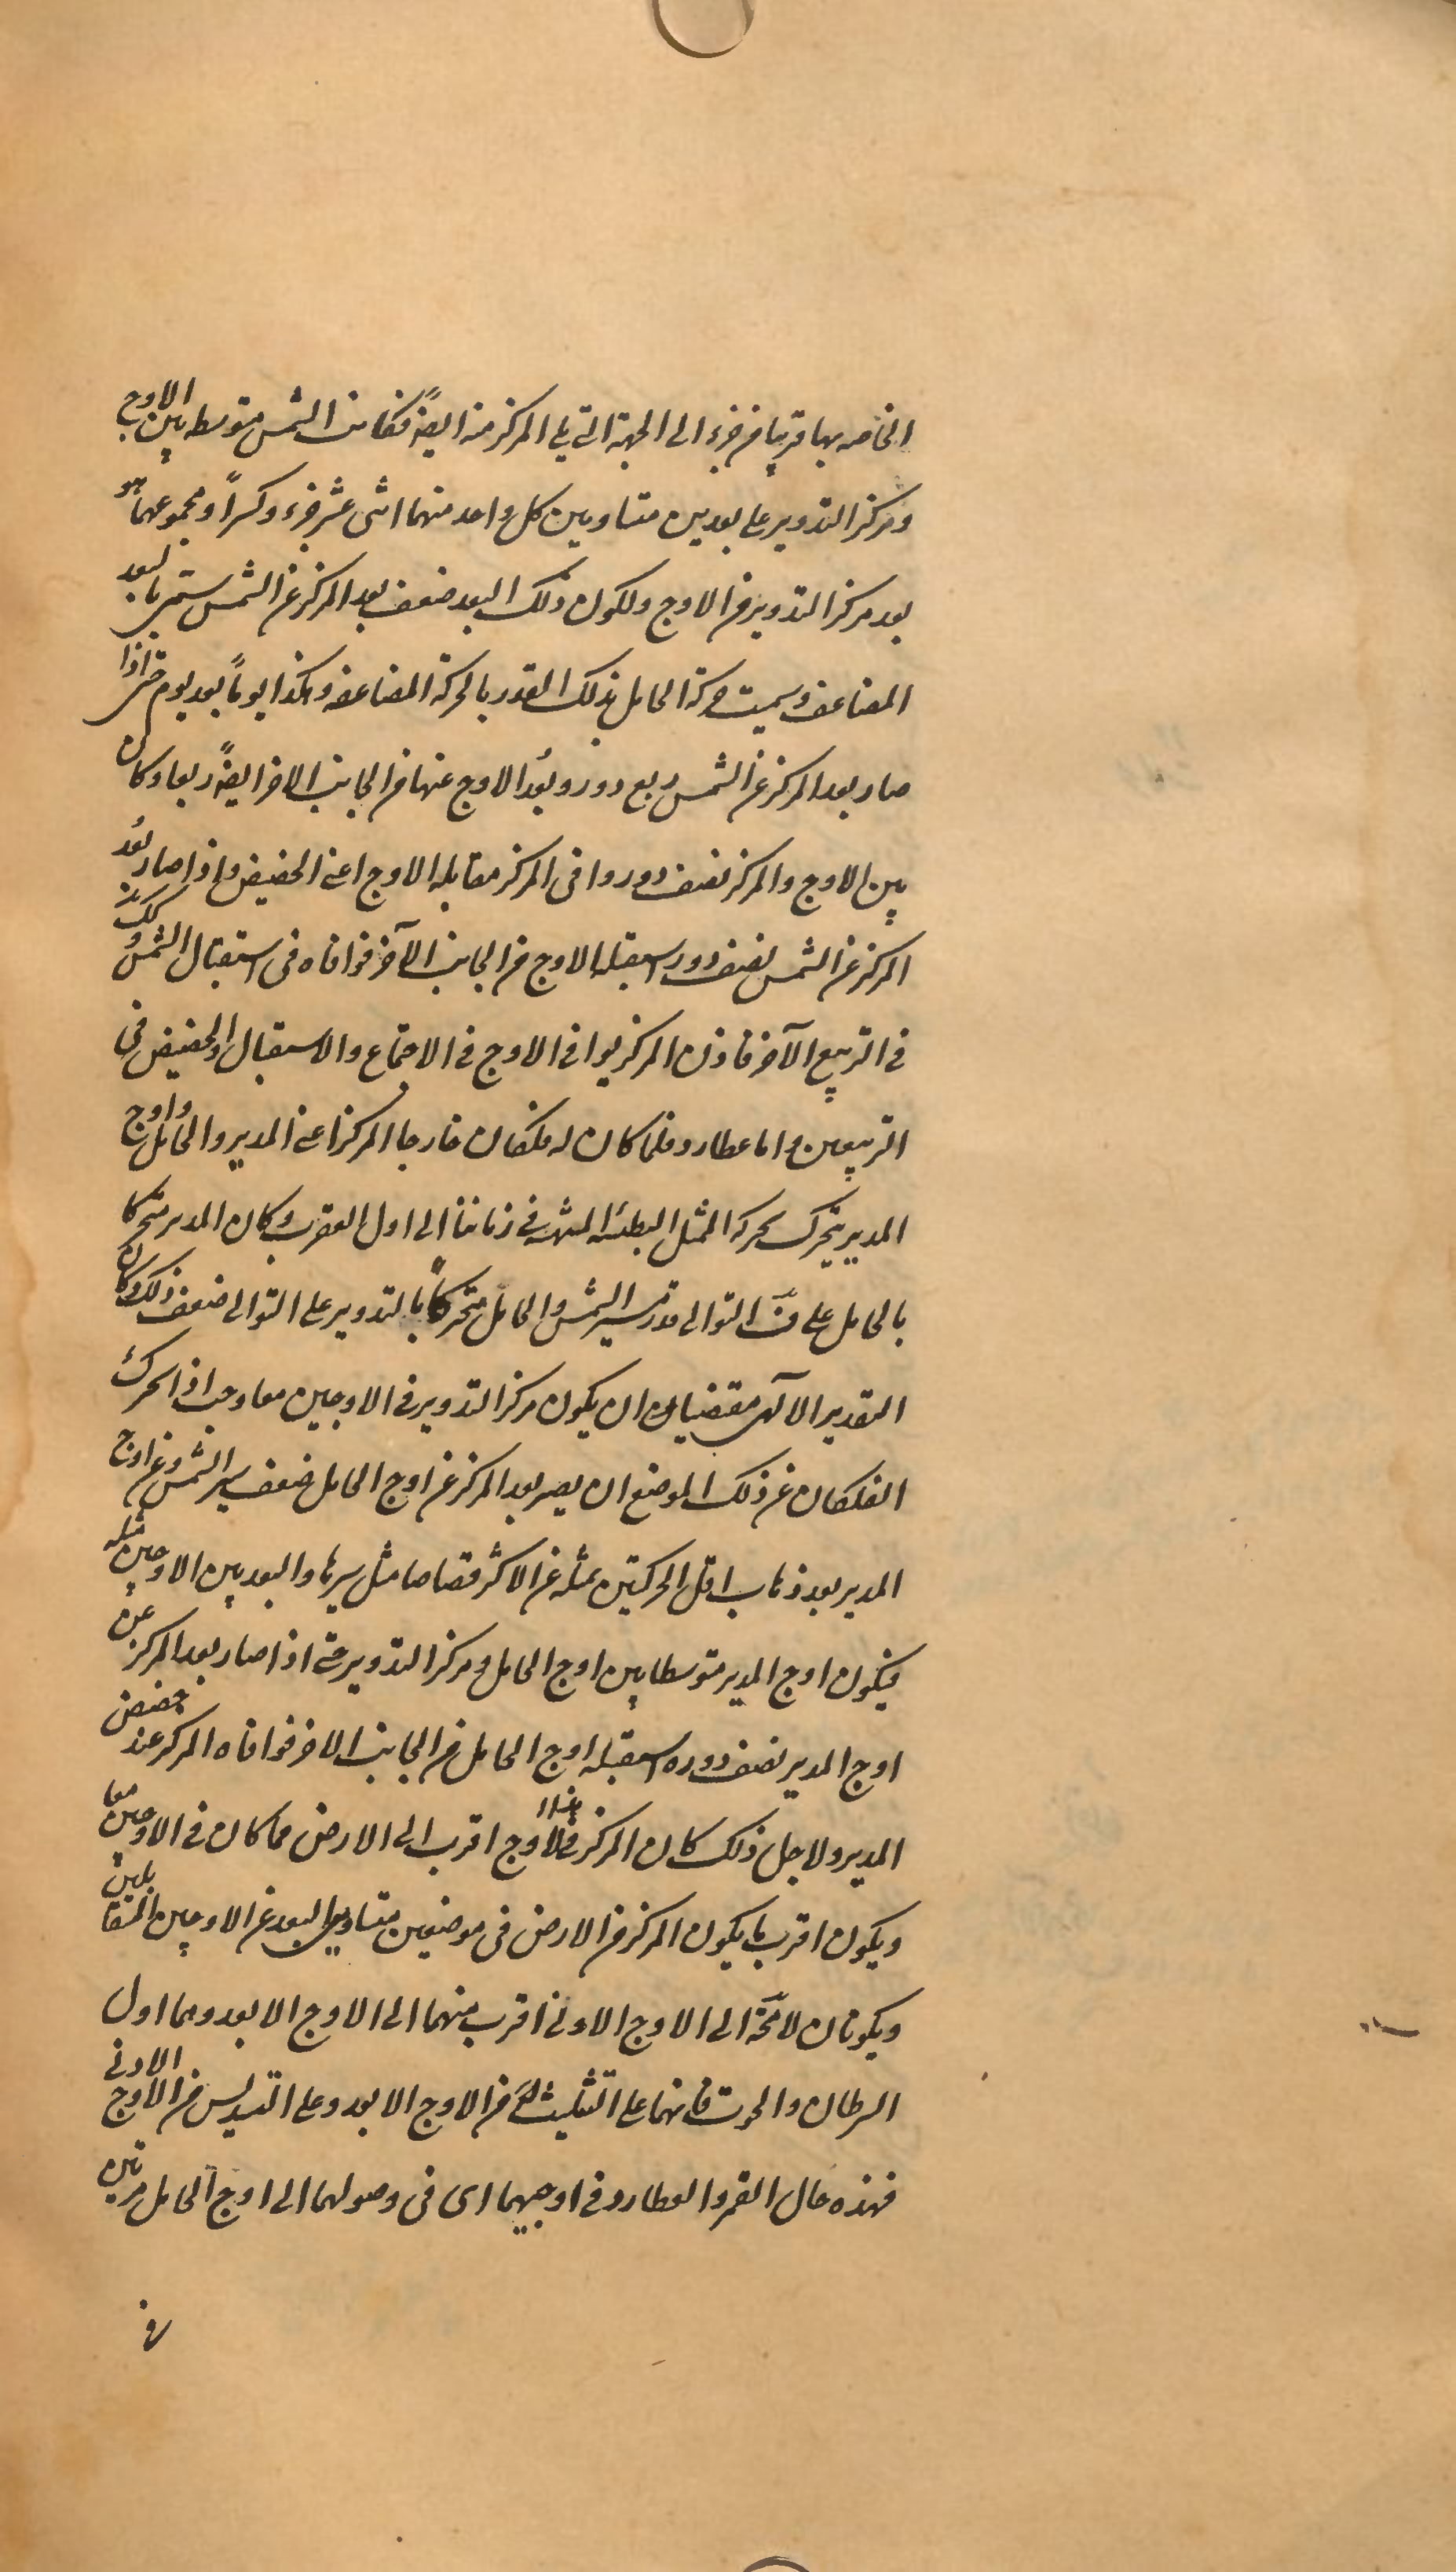 الخاصه بها قريبا من جزء الى الجهة التي يلي المركز منه ايضًا فكانت الشمس متوسطه بين الاوج
ومركز التدوير على بعدين متساويين كل واحد منهما اثنى عشر جزء وكسرًا ومجموعهما هو
بعد مركز التدوير من الاوج ولكون ذلك البعد ضعف بعد المركز عن الشمس ستمى بالبعد
المضاعف وسميت حركة الحامل بذلك القدر بالحركة المضاعفه وهكذا يومًا بعد يوم حتى اذا
صار بعد المركز عن الشمس ربع دور وبُعد الاوج عنها من الجانب الاخر ايضًا ربعا وكان
بين الاوج والمركز نصف دور وافى المركز مقابله الاوج اعنى الحضيض واذا صار بُعد
المركز عن الشمس نصف دور استقبله الاوج من الجانب الآخر فوافاه فى استقبال الشمس وكذلك
في التربيع الآخر فاذن المركز يوافى الاوج في الاجتماع والاستقبال والحضيض في
التربيعين واما عطارد فلما كان له فلكان خارجا المركز اعنى المدير والحامل واوج
المدير يتحرك بحركه الممثل البطيئه المنتهيه في زماننا الى اول العقرب وكان المدير متحركا
بالحامل على خلاف التوالى قدر مسير الشمس والحامل متحركًا بالتدوير على التوالى ضعف ذلك وكان
التقدير الالهى مقتضيان ان يكون مركز التدوير في الاوجين معا وجب اذا تحرك
الفلكان عن ذلك الموضع ان يصير بعد المركز عن اوج الحامل ضعف سير الشمس وعن اوج
المدير بعد ذهاب اقل الحركتين بمثله عن الاكثر قصاصا مثل سيرها والبعد بين الاوجين مثله
فيكون اوج المدير متوسطا بين اوج الحامل ومركز التدوير حتى اذا صار بعد المركز عن
اوج المدير نصف دوره استقبله اوج الحامل من الجانب الاخر فوافاه المركز عند حضيض
المدير ولاجل ذلك كان المركز في الاوج اقرب الى الارض مما كان في الاوجين معا
ويكون اقرب ما يكون المركز من الارض فى موضعين متساويى البعد عن الاوجين المتقابلين
ويكونان لا محٓة الى الاوج الادنى اقرب منهما الى الاوج الابعد وهما اول
السرطان والحوت فانهما على التثليث من الاوج الابعد وعلى التسديس من الاوج الادنى
فهذه حال القمر والعطارد في اوجيهما اى فى وصولهما الى اوج الحامل مرتين